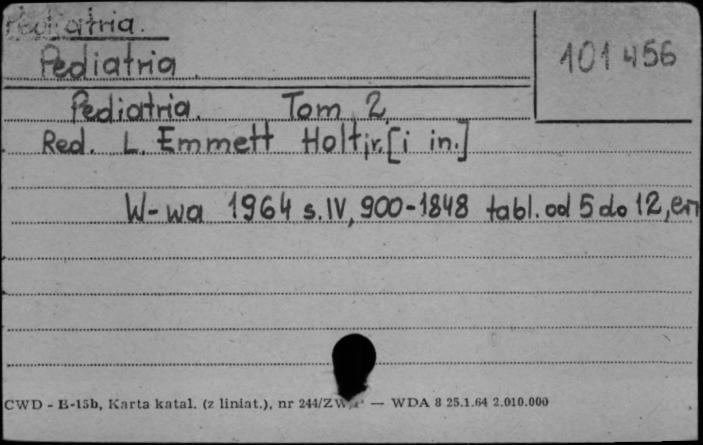 Pediatria.
Pediatria
101456
Pediatria. Tom 2.
Red. L. Emmett Holt jr. [i in.]
W-wa 1964 s. IV, 900-1848 tabl. od 5 do 12, err
CWD - B-15b, Karta katal. (z liniat.), nr 244/ZW — WDA 8 25.1.64 2.010.000